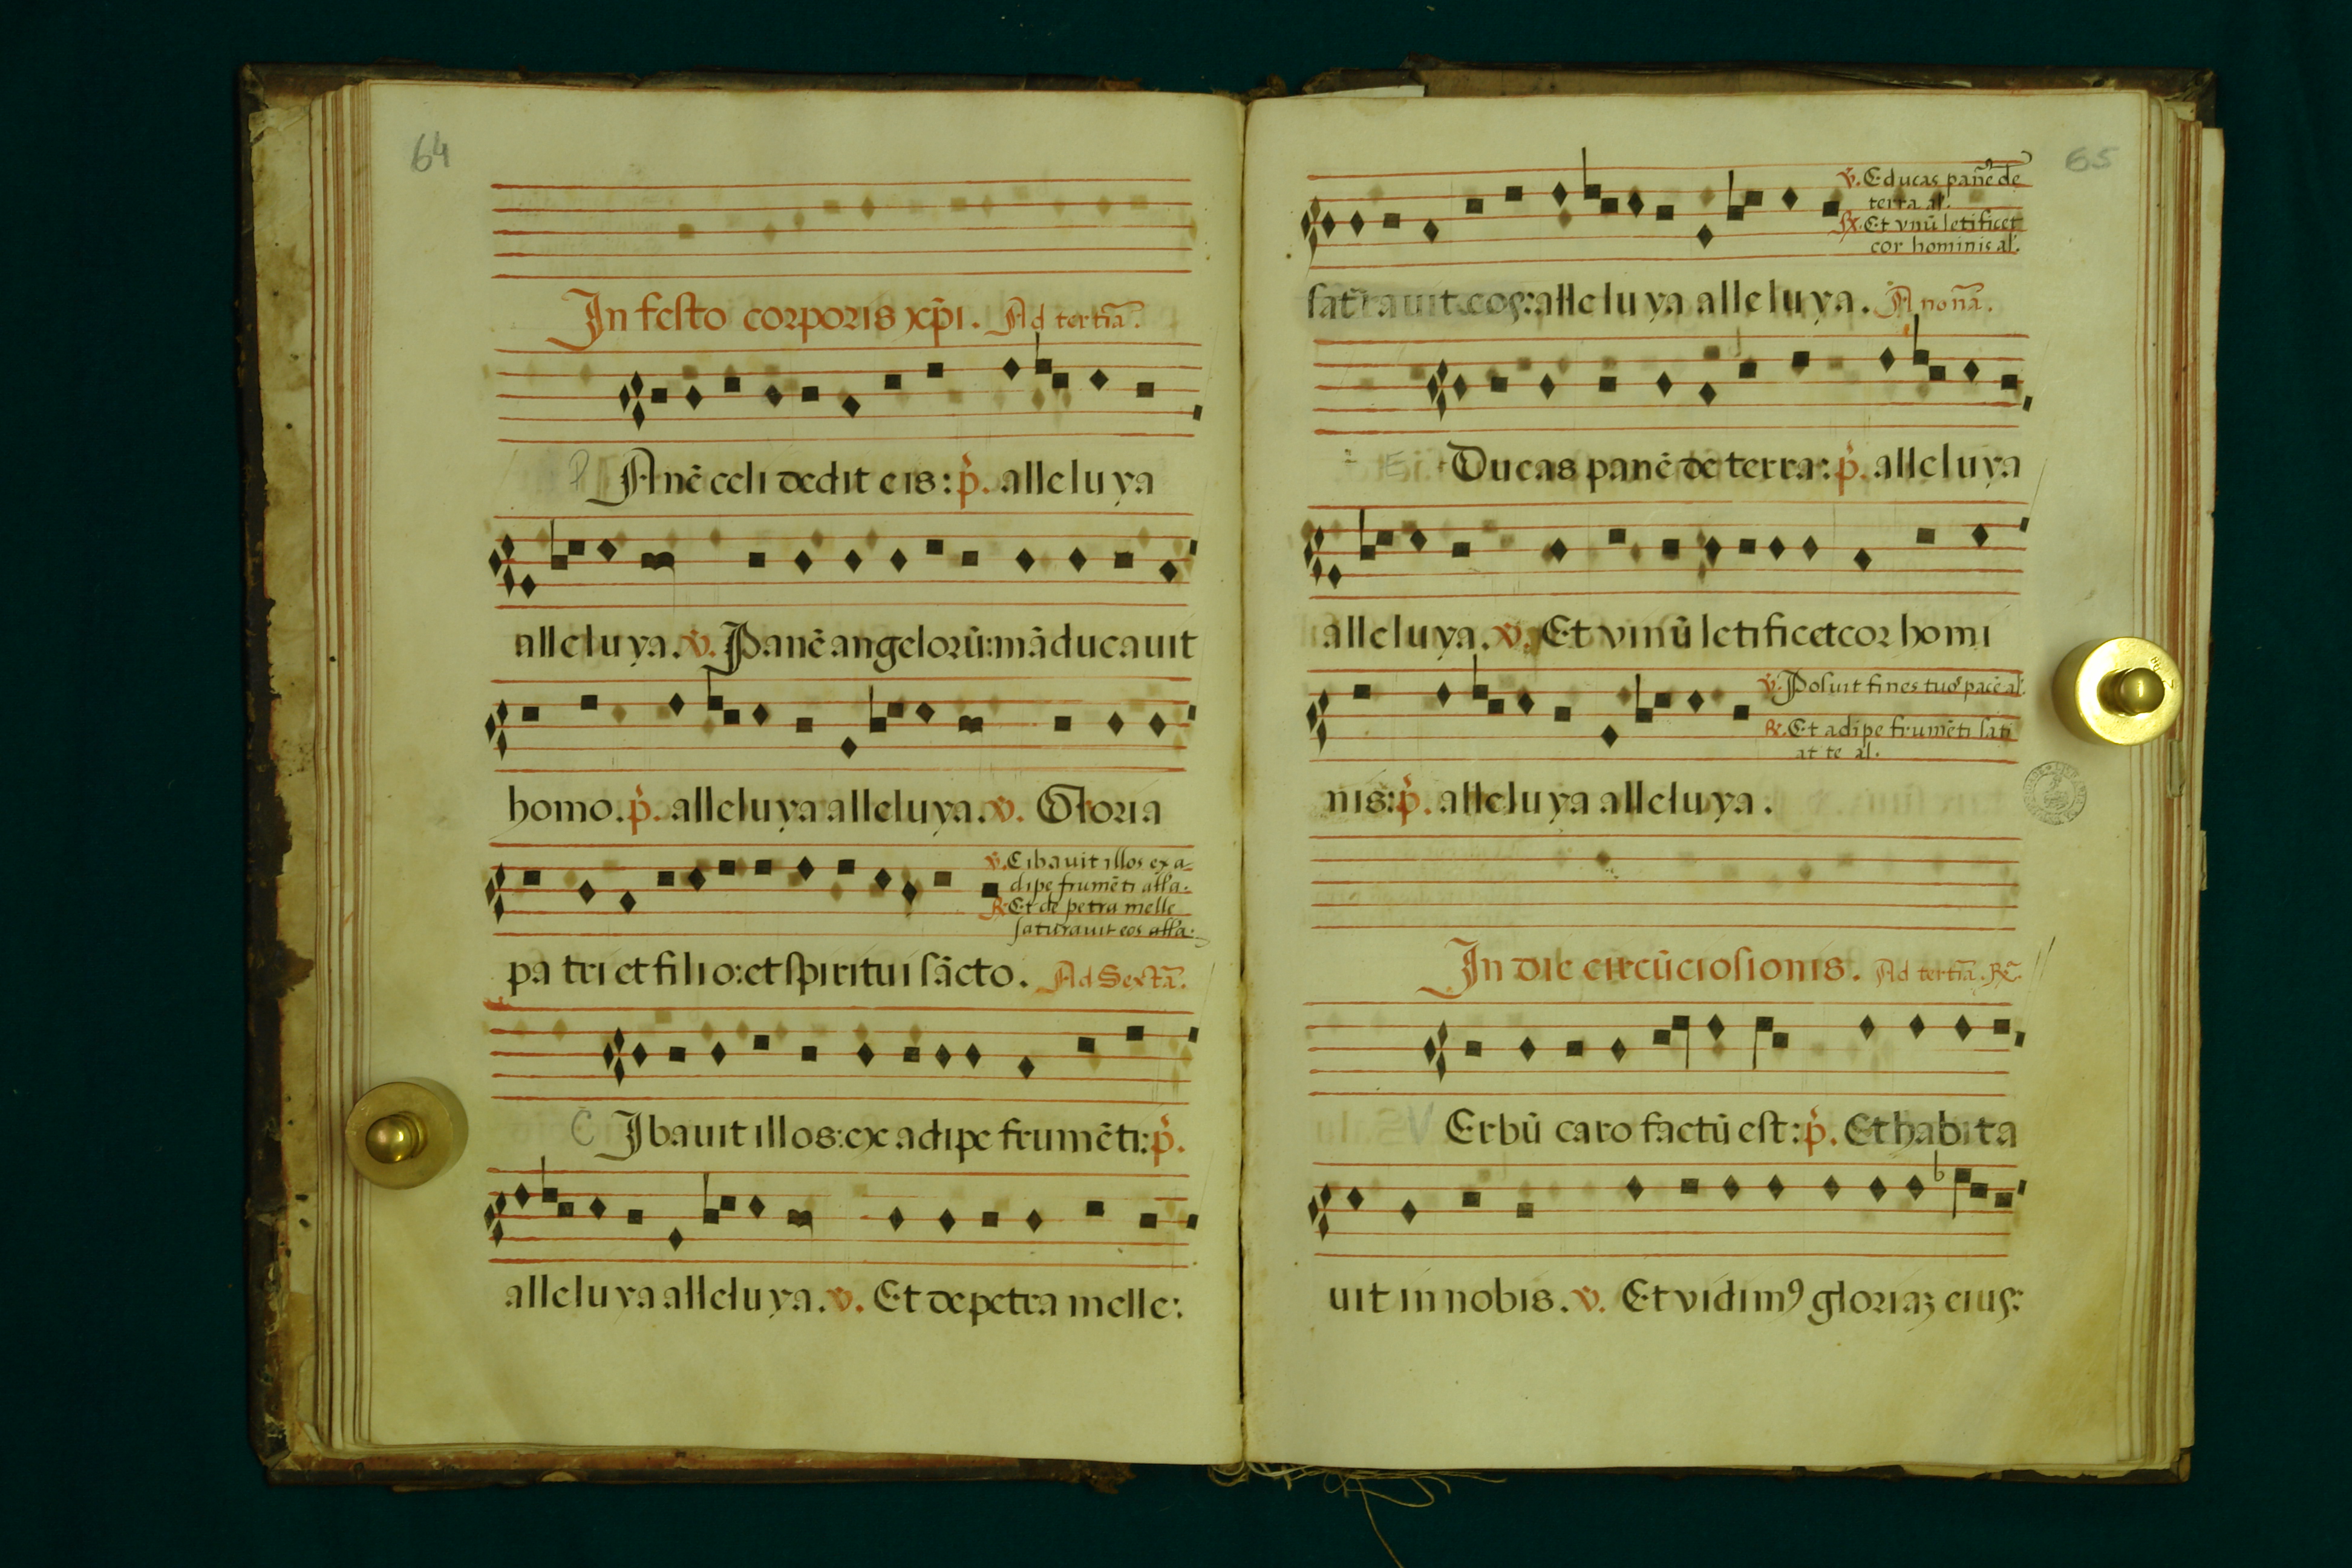 64
In festo corporis xp̄i. Ad tertiā.
P Anē celi dedit eis: p̄. alleluya
alleluya. v̄. Panē angelorū: māducauit
homo. p̄. alleluya alleluya. v̄. Gloria
v̄. Cibauit illos ex a-
dipe frumēti alľa.
R̄. Et de petra melle
saturauit eos alľa.
patri et filio: et spiritui sācto. Ad Sextā.
C Ibauit illos: ex adipe frumēti: p̄.
alleluya alleluya. v̄. Et de petra melle:
65
v̄. Educas panē de
terra al.
R̄. Et vinū letificet
cor hominis al.
satrauit eos: alleluya alleluya. A nonā.
E Ducas panē de terra: p̄. alleluya
alleluya. v̄. Et vinū letificet cor homi
v̄. Posuit fines tuos pacē al.
R̄. Et adipe frumēti sati
at te al.
nis: p̄. alleluya alleluya.
In die circūcisionis. Ad tertiā. R̄.
V Erbū caro factū est: p̄. Et habita
uit in nobis. v̄. Et vidimꝰ gloriaȝ eius: